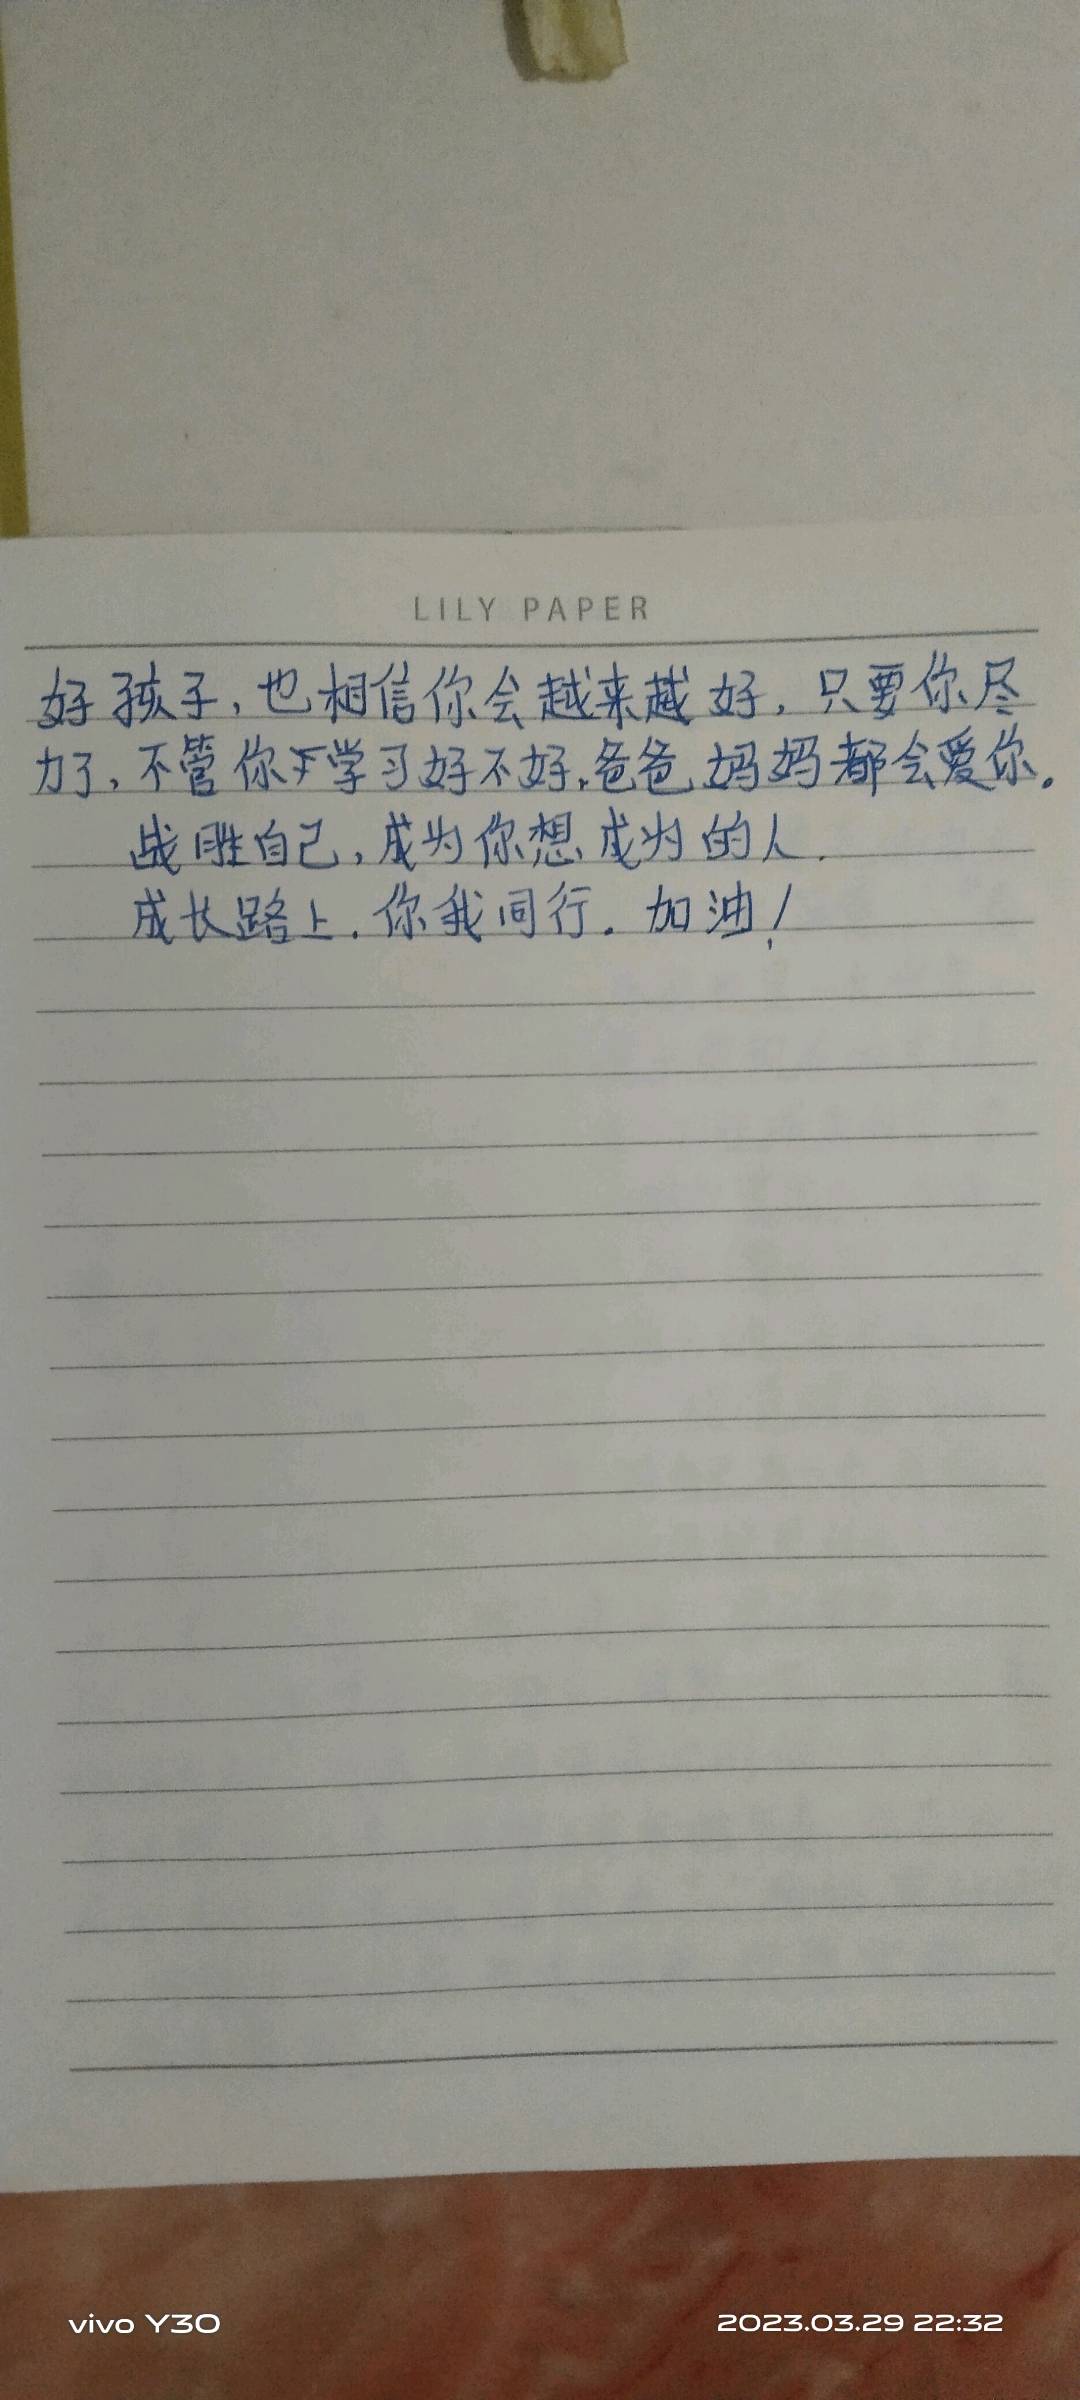 LILY PAPER
好孩子，也相信你会越来越好，只要你尽
力了，不管你学习好不好，爸爸妈妈都会爱你。
战胜自己，成为你想成为的人.
成长路上.你我同行.加油！
vivo Y30
2023.03.29 22:32